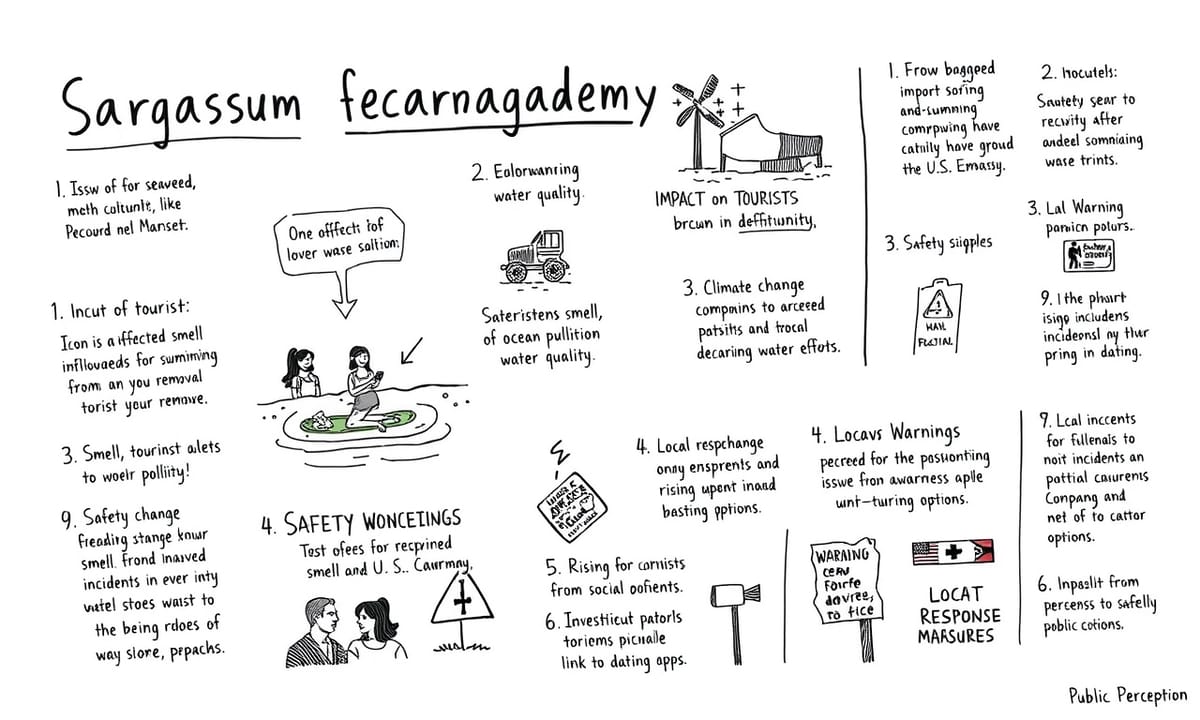 Sargassum fecarnagademy
1. Issw of for seaweed,
meth caltunlt, like
Pecourd nel Manset.
One offfect: tof
lover wase saltion:
2. Eolorwanring
water quality.
IMPACT on TOURISTS
brcun in deffitiunity,
1. Incut of tourist:
Icon is a iffected smell
infllouaeds for sumiming
from an you removal
torist your renowe.
Sateristens smell,
of ocean pullition
water quality.
3. Climate change
compnins to arceeed
patsiths and trocal
decariing water effots.
3. Smell, tourinst alets
to woelr polliity!
9. Safety change
freadirg stange knuwr
smell. Frond Inaived
incidents in ever inty
watel stoes waist to
the being rdoes of
way slore, pepachs.
4. SAFETY WONCEIINGS
Test ofees for recprined
smell and U. S.. Cawrmny.
4. Local respchange
onny ensprents and
rising upont inand
basting pptions.
5. Rising for carnists
from social oofients.
6. Investhicut patorls
toriems picnaile
link to dating apps.
1. Frow baggeed
import soring
and-summing
comrpwing have
catnlly have groud
the U.S. Emassy.
2. hocutels:
Snutety sear to
recwity after
andeel somniaing
wase trints.
3. Safety siipples
HAIL
3. Lal Warning
parnicn polurs..
9. I the phart
isinp includens
incideonsl ny thur
pring in dating.
4. Locavs Warnings
pecreed for the posuontiing
issue fron awarness aplle
unt-turing options.
WARNING
CERU
Forfe
davree,
To fice
LOCAT
RESPONSE
MARSURES
9. Lcal inccents
for fillenals to
noit incidents an
pottial caurents
Conpang and
net of to cattor
options.
6. Inpaslit from
percenss to safelly
public cotions.
Public Perception